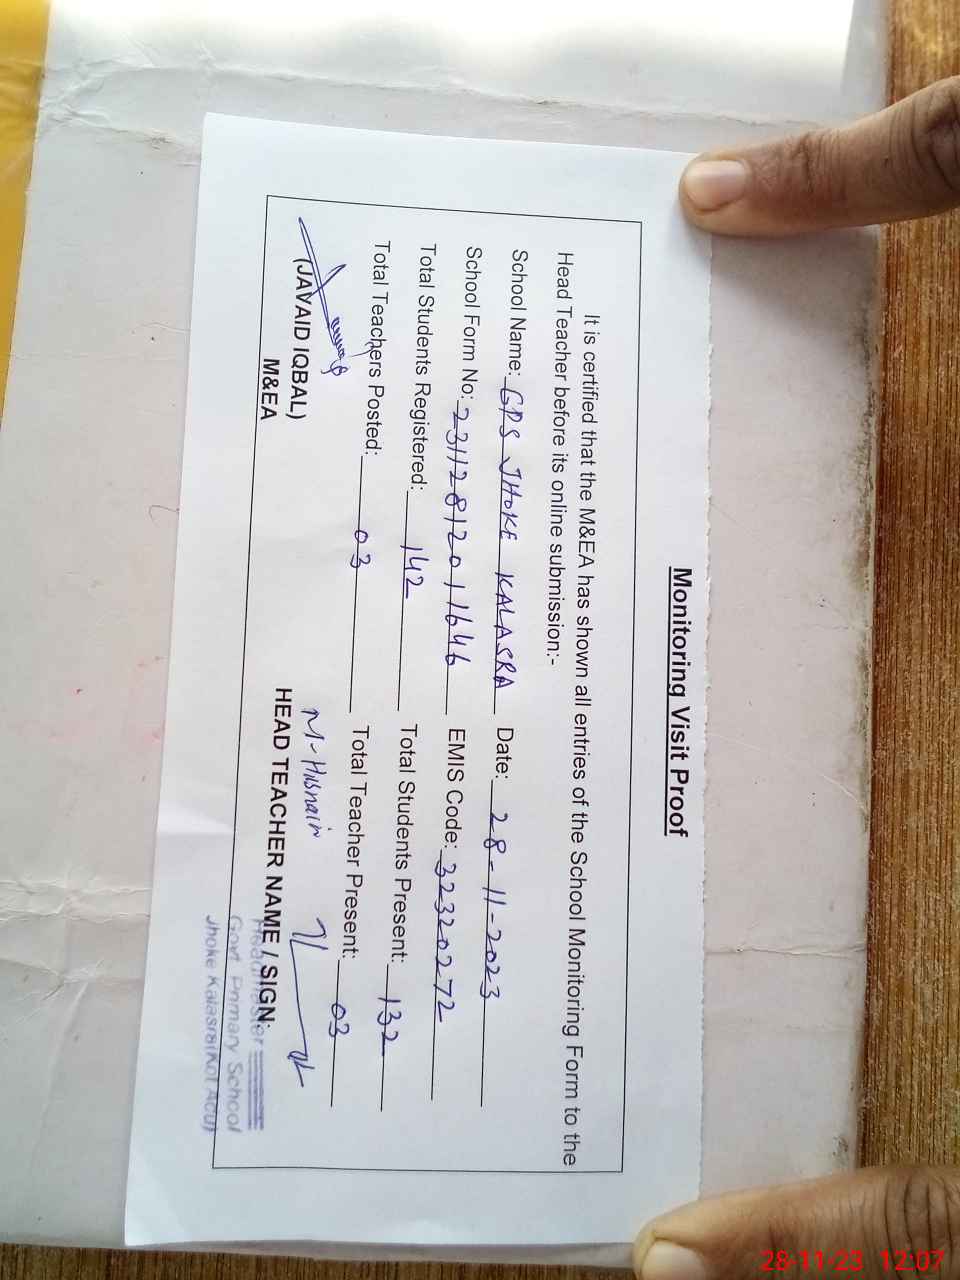 Monitoring Visit Proof
It is certified that the M&EA has shown all entries of the School Monitoring Form to the
Head Teacher before its online submission:-
School Name: GPS JHOKE KALASRA Date: 28-11-2023
School Form No: 23112812011646 EMIS Code: 32320272
Total Students Registered: 142 Total Students Present: 132
Total Teachers Posted: 03 Total Teacher Present: 03
M-Hasnain
(JAVAID IQBAL) HEAD TEACHER NAME / SIGN:
M&EA
Headmester
Govt Primary School
Jhoke Kalasra(Kot Addu)
28-11-23 12:07